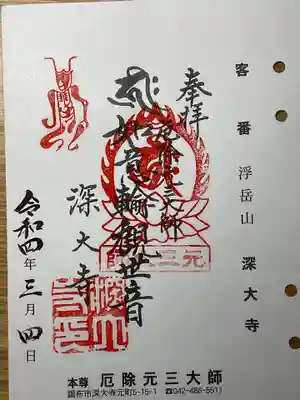 客番 浮岳山 深大寺
奉拝
厄除元三大師
如意輪観世音
深大寺
元三大師
令和四年三月四日
本尊 厄除元三大師
調布市深大寺元町5-15-1 ☎042-486-5511